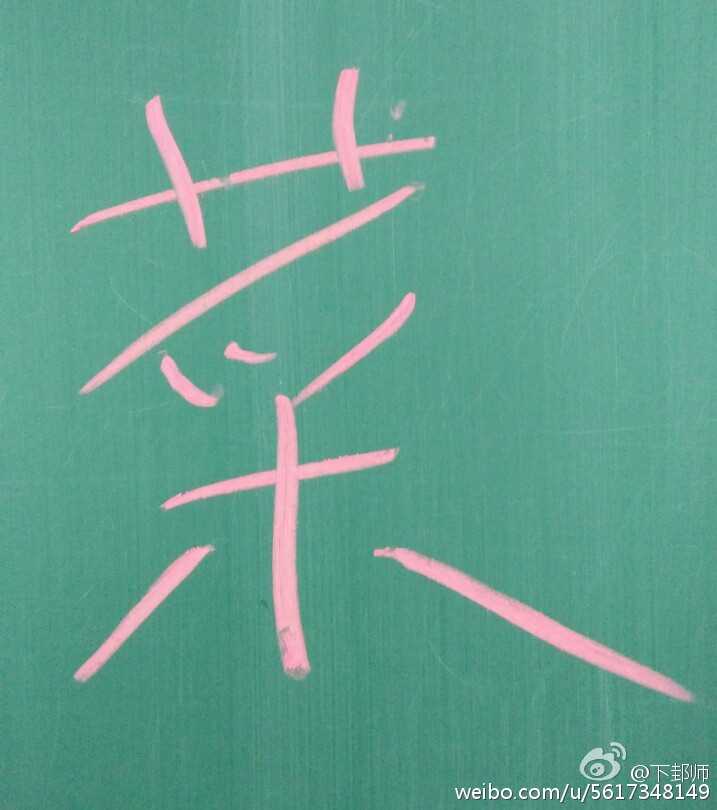 菜
@下邽师
weibo.com/u/5617348149